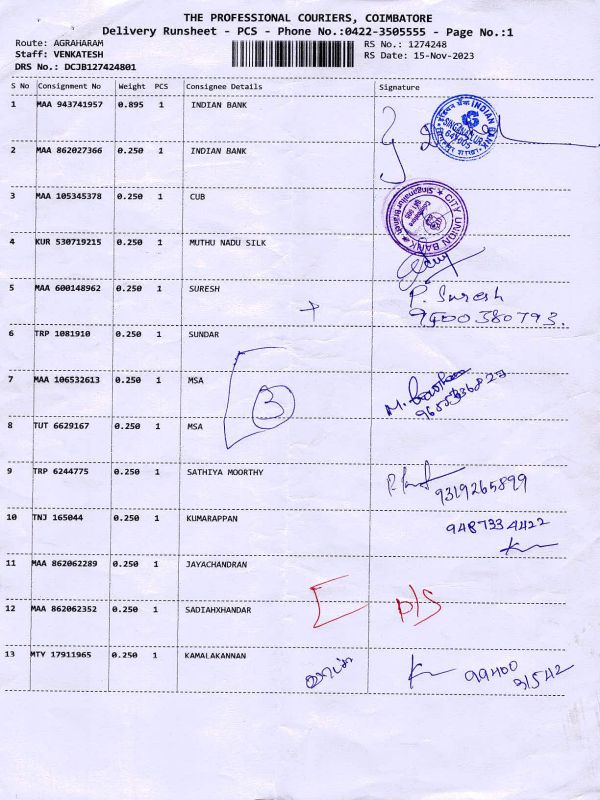 THE PROFESSIONAL COURIERS, COIMBATORE
Delivery Runsheet - PCS - Phone No.:0422-3505555 - Page No.:1
Route: AGRAHARAM
RS No.: 1274248
Staff: VENKATESH
RS Date: 15-Nov-2023
DRS No.: DCJB127424801
S No Consignment No Weight PCS Consignee Details Signature
1 MAA 943741957 0.895 1 INDIAN BANK
2 MAA 862027366 0.250 1 INDIAN BANK
3 MAA 105345378 0.250 1 CUB
CITY UNION BANK
4 KUR 530719215 0.250 1 MUTHU NADU SILK
5 MAA 600148962 0.250 1 SURESH P. Suresh
9400380793.
6 TRP 1081910 0.250 1 SUNDAR
7 MAA 106532613 0.250 1 MSA
3
8 TUT 6629167 0.250 1 MSA
9 TRP 6244775 0.250 1 SATHIYA MOORTHY 9319265899
10 TNJ 165044 0.250 1 KUMARAPPAN 9487334422
11 MAA 862062289 0.250 1 JAYACHANDRAN
12 MAA 862062352 0.250 1 SADIAHXHANDAR D/S
13 MTY 17911965 0.250 1 KAMALAKANNAN 99400
31542